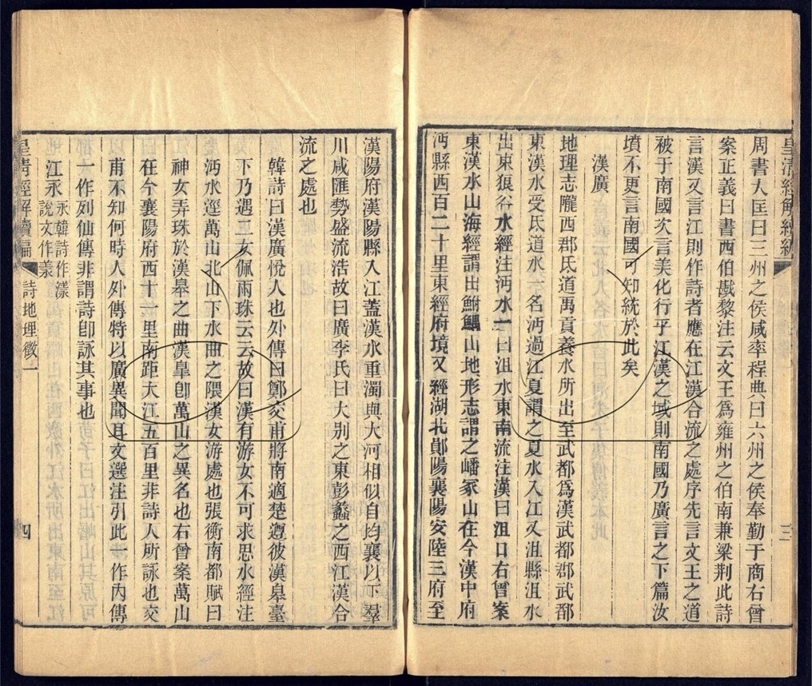 皇清經解續編
三
周書大匡曰三州之侯咸率程典曰六州之侯奉勤于商右曾
案正義曰書西伯戡黎注云文王為雍州之伯南兼梁荊此詩
言漢又言江則作詩者應在江漢合流之處序先言文王之道
被于南國次言美化行乎江漢之域則南國乃廣言之下篇汝
墳不更言南國可知統於此矣
漢廣
地理志隴西郡氐道禹貢養水所出至武都為漢武都郡武都
東漢水受氐道水一名沔過江夏謂之夏水入江又沮縣沮水
出東狼谷水經注沔水一曰沮水東南流注漢曰沮口右曾案
東漢水山海經謂出鮒鰅山地形志謂之嶓冢山在今漢中府
沔縣西百二十里東經府境又經湖北鄖陽襄陽安陸三府至
漢陽府漢陽縣入江蓋漢水重濁與大河相似自均襄以下羣
川咸匯勢盛流浩故曰廣李氏曰大别之東彭蠡之西江漢合
流之處也
韓詩曰漢廣悅人也外傳曰鄭交甫將南適楚遵彼漢皋臺
下乃遇二女佩兩珠云云故曰漢有游女不可求思水經注
沔水逕萬山北山下水曲之隈漢女游處也張衡南都賦曰
神女弄珠於漢皋之曲漢皋卽萬山之異名也右曾案萬山
在今襄陽府西十一里南距大江五百里非詩人所詠也交
甫不知何時人外傳特以廣異聞耳文選注引此一作內傳
一作列仙傳非謂詩卽詠其事也
江永永韓詩作漾
說文作羕
皇清經解續編
詩地理徵一
四